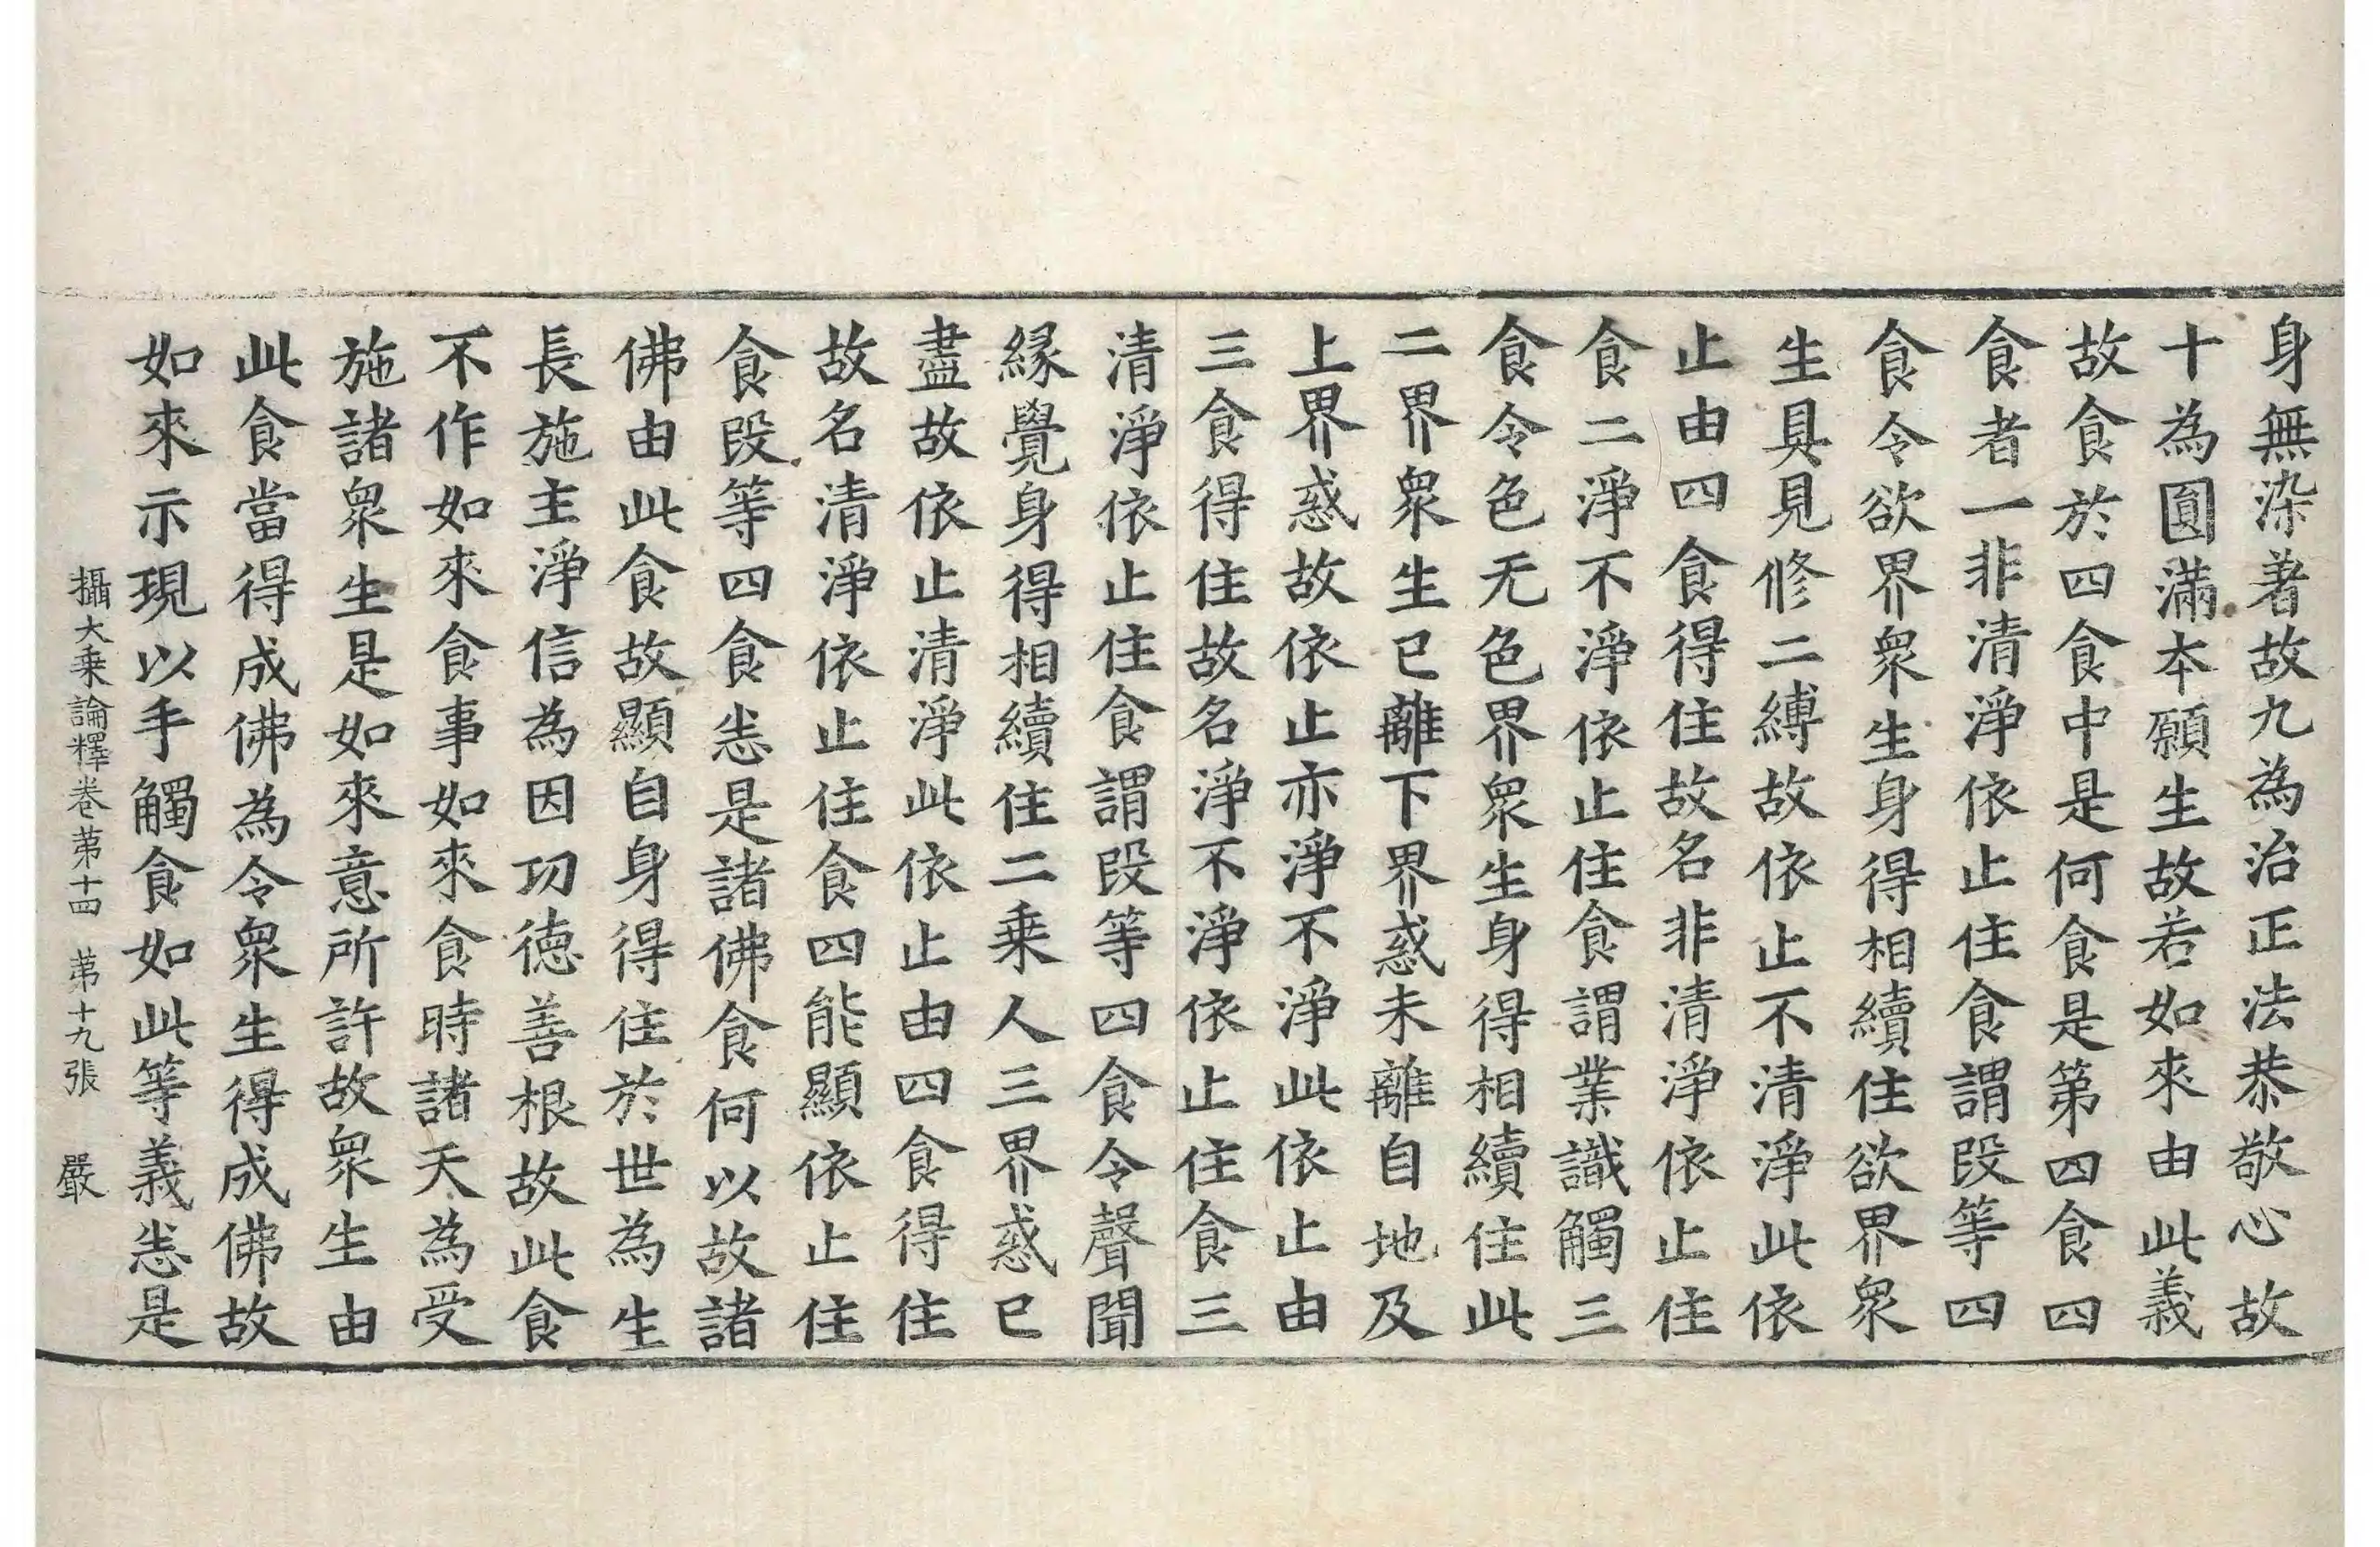 身無染著故九為治正法恭敬心故
十為圓滿本願生故若如來由此義
故食於四食中是何食是第四食四
食者一非清淨依止住食謂段等四
食令欲界衆生身得相續住欲界衆
生具見修二縛故依止不清淨此依
止由四食得住故名非清淨依止住
食二淨不淨依止住食謂業識觸三
食令色无色界衆生身得相續住此
二界衆生已離下界惑未離自地及
上界惑故依止亦淨不淨此依止由
三食得住故名淨不淨依止住食三
清淨依止住食謂段等四食令聲聞
緣覺身得相續住二乗人三界惑已
盡故依止清淨此依止由四食得住
故名清淨依止住食四能顯依止住
食段等四食恙是諸佛食何以故諸
佛由此食故顯自身得住於世為生
長施主淨信為因功德善根故此食
不作如來食事如來食時諸天為受
施諸衆生是如來意所許故衆生由
此食當得成佛為令衆生得成佛故
如來示現以手觸食如此等義恙是
攝大乗論釋卷苐十四　苐十九張　嚴